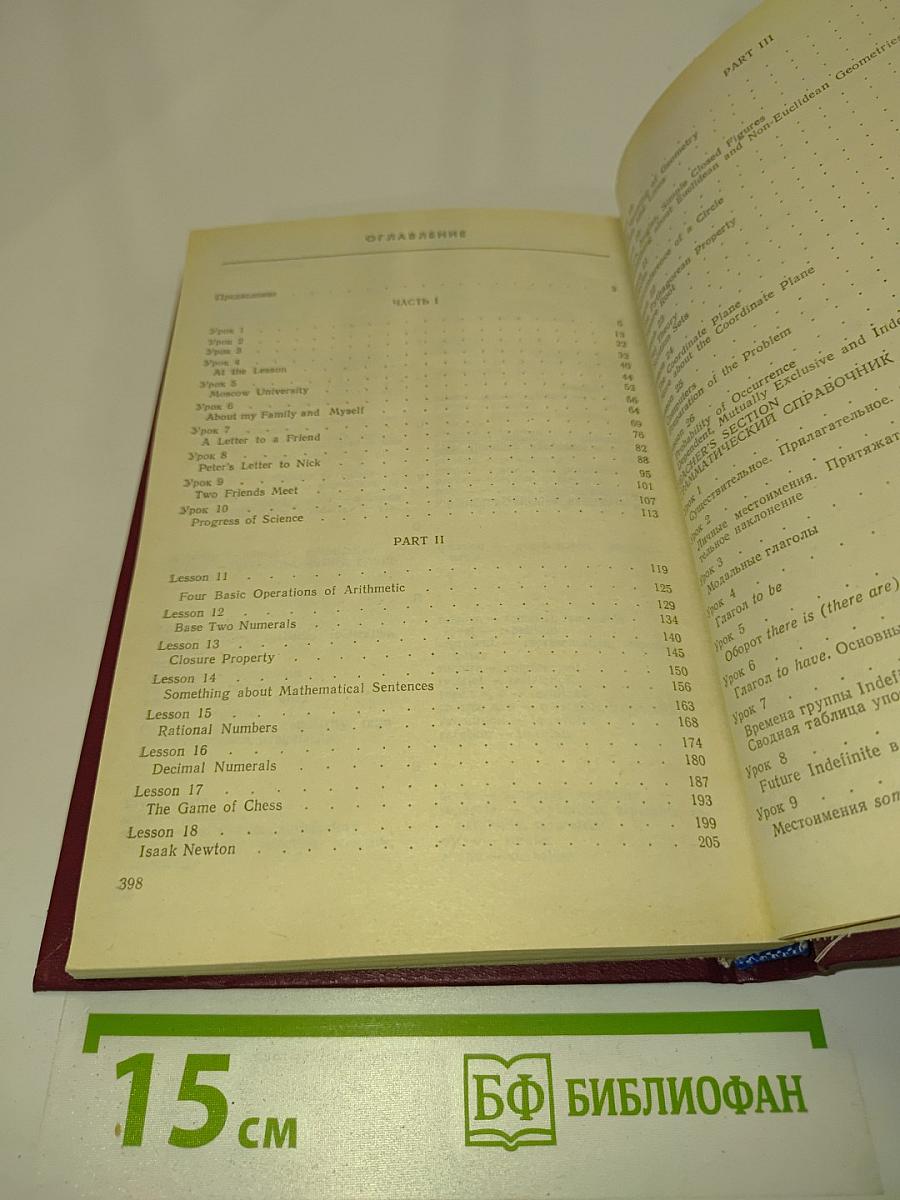 ОГЛАВЛЕНИЕ
Предисловие . . . 3
ЧАСТЬ I
Урок 1 . . . 5
Урок 2 . . . 13
Урок 3 . . . 22
Урок 4 . . . 33
At the Lesson . . . 40
Урок 5 . . . 44
Moscow University . . . 52
Урок 6 . . . 56
About my Family and Myself . . . 64
Урок 7 . . . 69
A Letter to a Friend . . . 76
Урок 8 . . . 82
Peter's Letter to Nick . . . 88
Урок 9 . . . 95
Two Friends Meet . . . 101
Урок 10 . . . 107
Progress of Science . . . 113
PART II
Lesson 11 . . . 119
Four Basic Operations of Arithmetic . . . 125
Lesson 12 . . . 129
Base Two Numerals . . . 134
Lesson 13 . . . 140
Closure Property . . . 145
Lesson 14 . . . 150
Something about Mathematical Sentences . . . 156
Lesson 15 . . . 163
Rational Numbers . . . 168
Lesson 16 . . . 174
Decimal Numerals . . . 180
Lesson 17 . . . 187
The Game of Chess . . . 193
Lesson 18 . . . 199
Isaak Newton . . . 205
398
PART III
of Geometry
Simple Closed Figures
about Euclidean and Non-Euclidean Geometries
of a Circle
Property
Root
Theory
Sets
24
Coordinate Plane
about the Coordinate Plane
25
of the Problem
26
Probability of Occurrence
Dependent, Mutually Exclusive and Inde
SECTION
СПРАВОЧНИК
Урок 1
Существительное. Прилагательное.
Урок 2
Личные местоимения. Притяжат
тельное наклонение
Урок 3
Модальные глаголы
Урок 4
Глагол to be
Урок 5
Оборот there is (there are)
Урок 6
Глагол to have. Основны
Урок 7
Времена группы Indefi
Сводная таблица упо
Урок 8
Future Indefinite в
Урок 9
Местоимения som
15 см
БФ БИБЛИОФАН